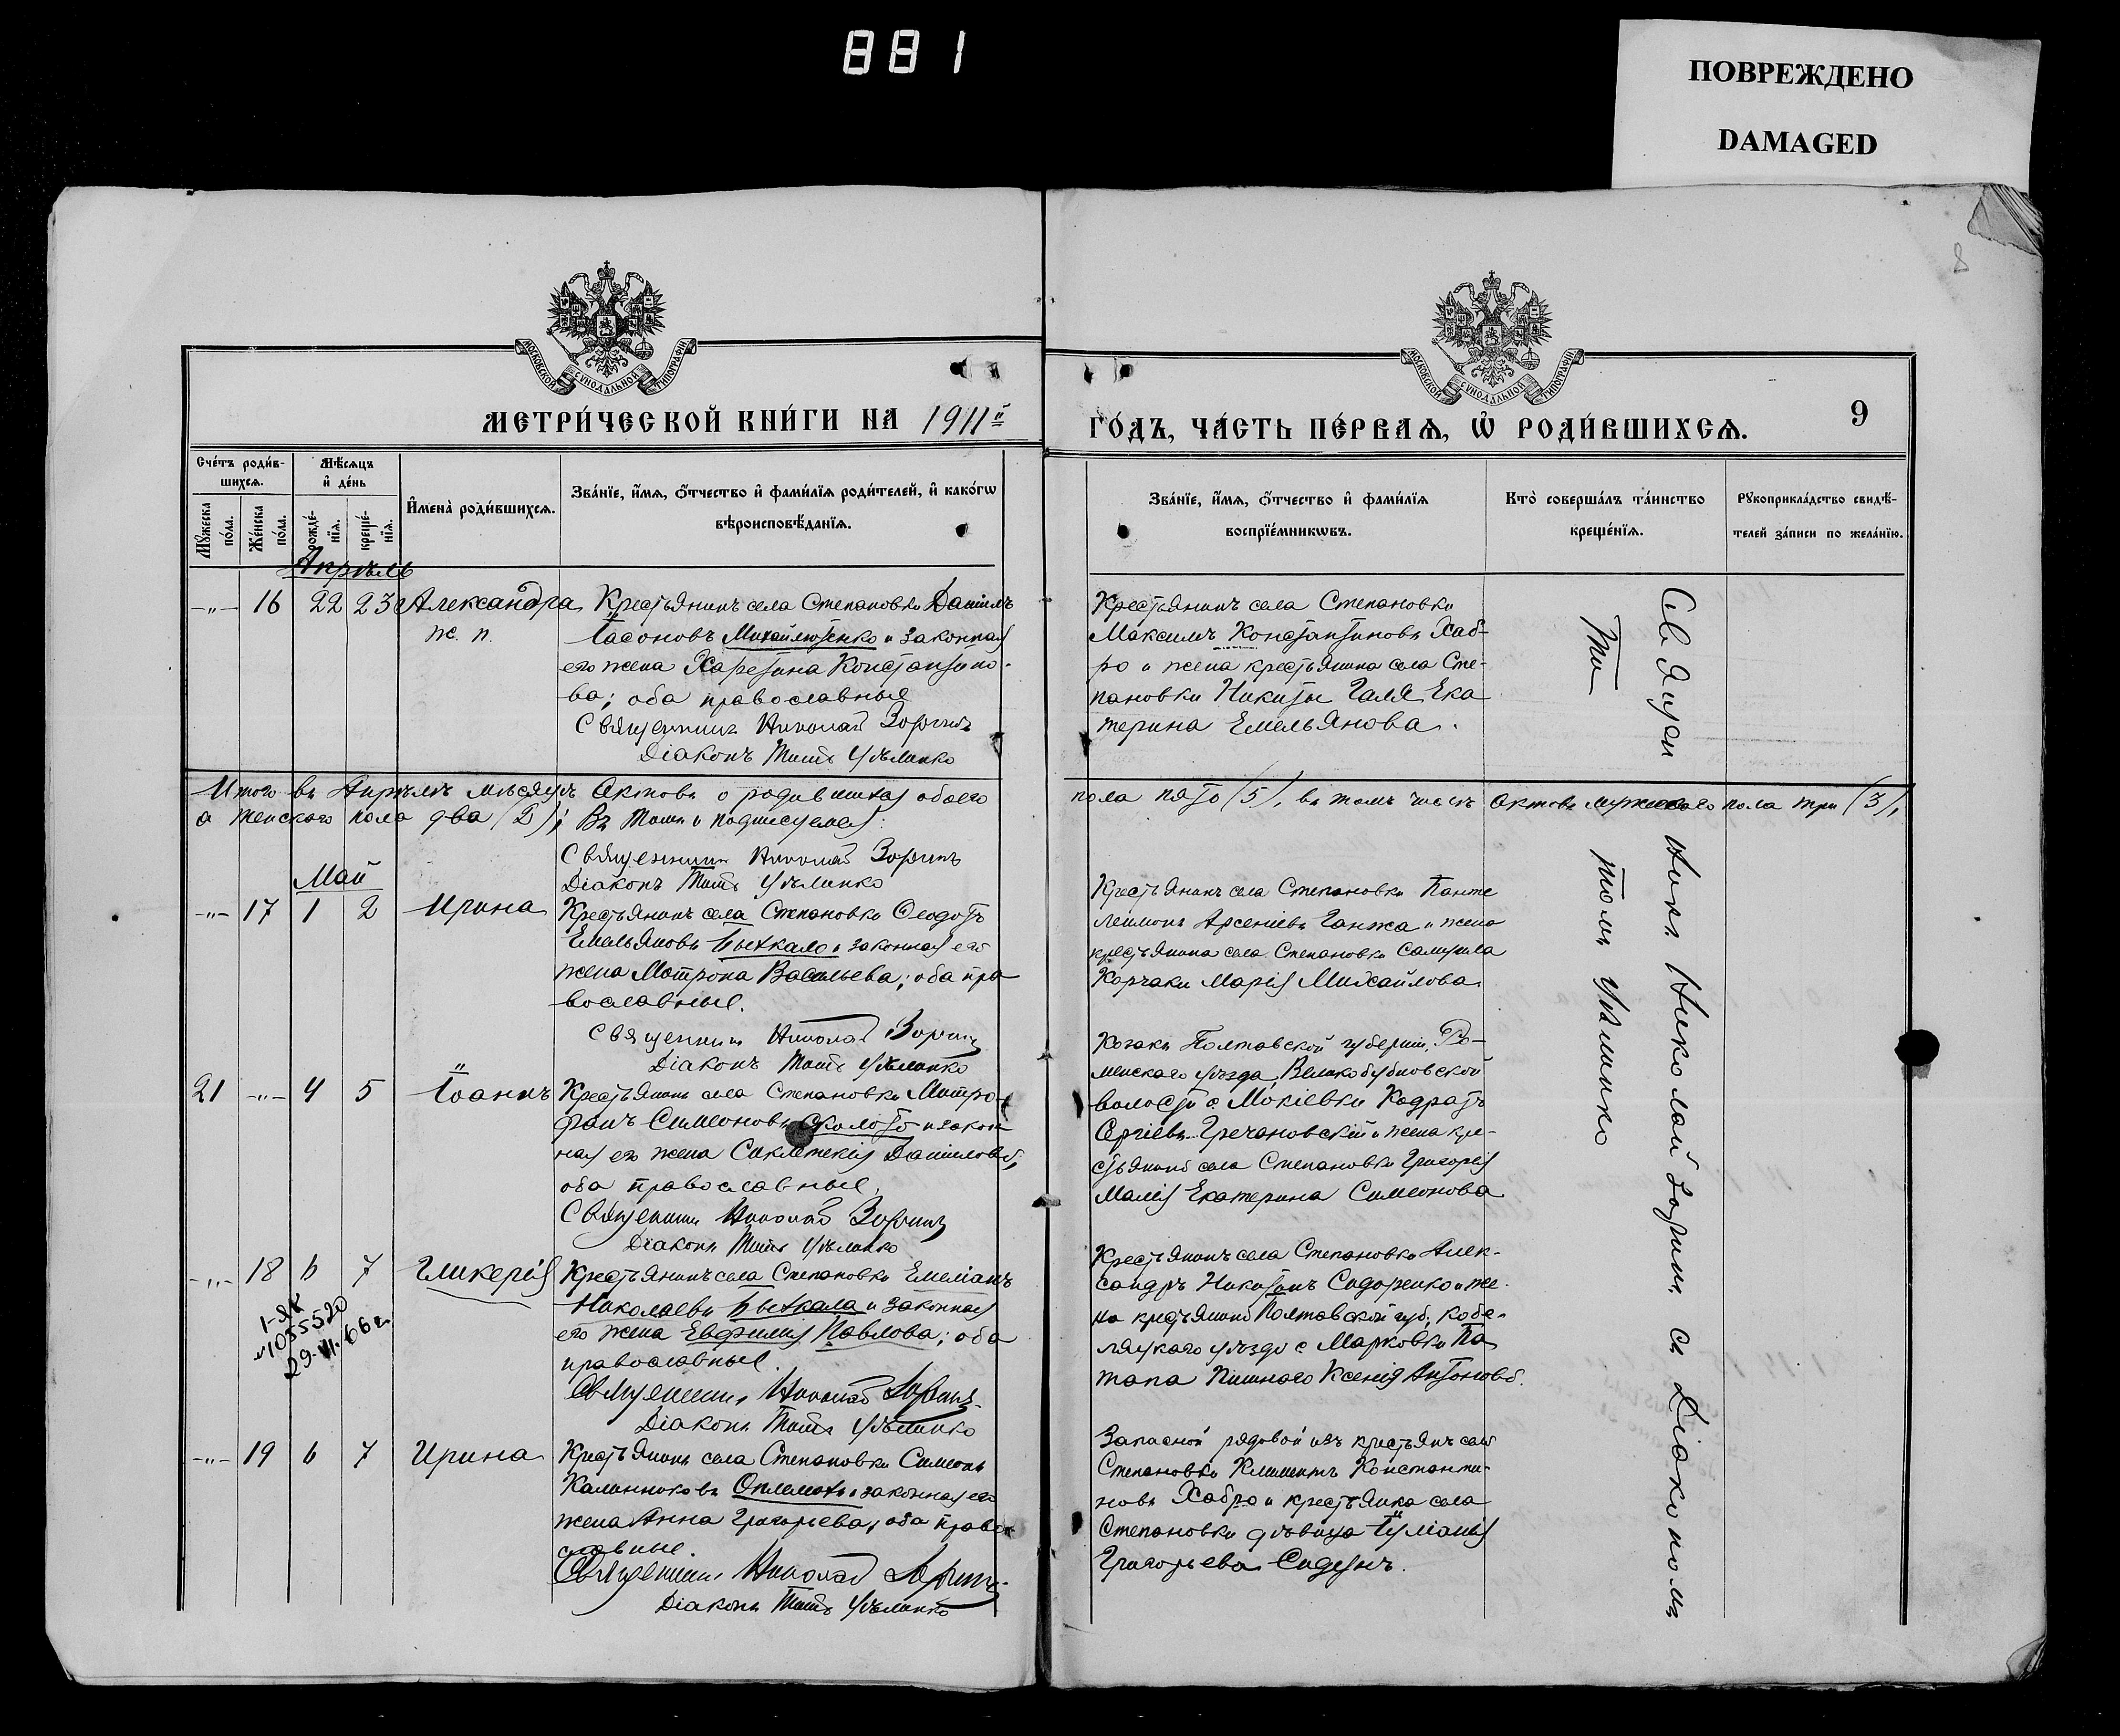 881
ПОВРЕЖДЕНО
DAMAGED
8
МОСКОВСКОЙ СѴНОДАЛЬНОЙ ТИПОГРАФІИ
МОСКОВСКОЙ СѴНОДАЛЬНОЙ ТИПОГРАФІИ
МЕТРИ́ЧЕСКОЙ КНИ́ГИ НА 1911й
ГО́ДЪ, ЧА́СТЬ ПЕ́РВАѦ, Ѡ҆ РОДИ́ВШИХСѦ.
9
Сче́тъ роди́в-
шихсѧ.
Мѣ́сѧцъ
и҆ де́нь
Мꙋ́жеска
по́ла.
Же́нска
по́ла.
рожде́-
нїѧ.
креще́-
нїѧ.
И҆мена̀ роди́вшихсѧ.
Зва́нїе, и҆́мѧ, ѻ҆́тчество и҆ фами́лїѧ роди́телей, и҆ како́гѡ
вѣроисповѣ́данїѧ.
Зва́нїе, и҆́мѧ, ѻ҆́тчество и҆ фами́лїѧ
воспрїе́мникѡвъ.
Кто̀ соверша́лъ та́инство
креще́нїѧ.
Рꙋкоприкла́дство свидѣ́-
телей за́писи по жела́нїю.
Апрѣль
-"- 16 22 23 Александра
ж. п.
Крестьянинъ села Степановки Даніилъ
Іасоновъ Михайлютенко и законная
его жена Харетина Константино-
ва; оба православные
Священникъ Николай Зоринъ
Діаконъ Титъ Усѣленко
Крестьянинъ села Степановки
Максимъ Константиновъ Хаб-
ро и жена крестьянина села Сте-
пановки Никиты Галя Ека
терина Емельянова.
Итого въ Апрѣлѣ мѣсяцѣ актовъ о родившихся обоего
пола пять (5), въ томъ числѣ актовъ мужескаго пола три (3),
а женскаго пола два (2); въ томъ и подписуемся:
Священникъ Николай Зоринъ
Діаконъ Титъ
Май
-"- 17 1 2 Ирина
Крестьянинъ села Степановки Ѳеодотъ
Емельяновъ Цыхкало и законная его
жена Матрона Васильева; оба пра
вославные.
Священникъ Николай Зоринъ
Діаконъ Титъ
Крестьянинъ села Степановки Панте
леимонъ Арсеніевъ Ганжа и жена
крестьянина села Степановки Самуила
Корчаки Марія Михайлова.
21 -"- 4 5 Іоаннъ
Крестьянинъ села Степановки Митро-
фанъ Симеоновъ Сколото и закон
ная его жена Синклитикія Даніилова,
оба православные,
Священникъ Николай Зоринъ
Діаконъ Титъ
Козакъ Полтавской губерніи, Ро-
менскаго уѣзда, Великобубновской
волости с. Мокіевки Кодратъ
Сергіевъ Гречановскій и жена кре-
стьянина села Степановки Григорія
Малія Екатерина Симеонова
-"- 18 6 7 Гликерія
1-ЯК
№1055520
29.VI.66г.
Крестьянинъ села Степановки Емеліанъ
Николаевъ Цыхкала и законная
его жена Евфимія Павлова; оба
православные.
Священникъ Николай Зоринъ
Діаконъ Титъ
Крестьянинъ села Степановки Алек-
сандръ Никитинъ Сидоренко и же-
на крестьянина Полтавской губ, Кобе-
ляцкаго уѣзда с Марковки По
тапа Пишнаго Ксенія Антонова.
-"- 19 6 7 Ирина
Крестьянинъ села Степановки Симеонъ
Калинниковъ и законная его
жена Анна Григорьева; оба право
славные.
Священникъ Николай Зоринъ
Діаконъ Титъ
Запасной рядовой изъ крестьянъ села
Степановки Климентъ Константи-
новъ Хабро и крестьянка села
Степановки дѣвица Іуліанія
Григорьева Сидунъ.
Священ никъ Николай Зоринъ съ Діакономъ
Ти томъ